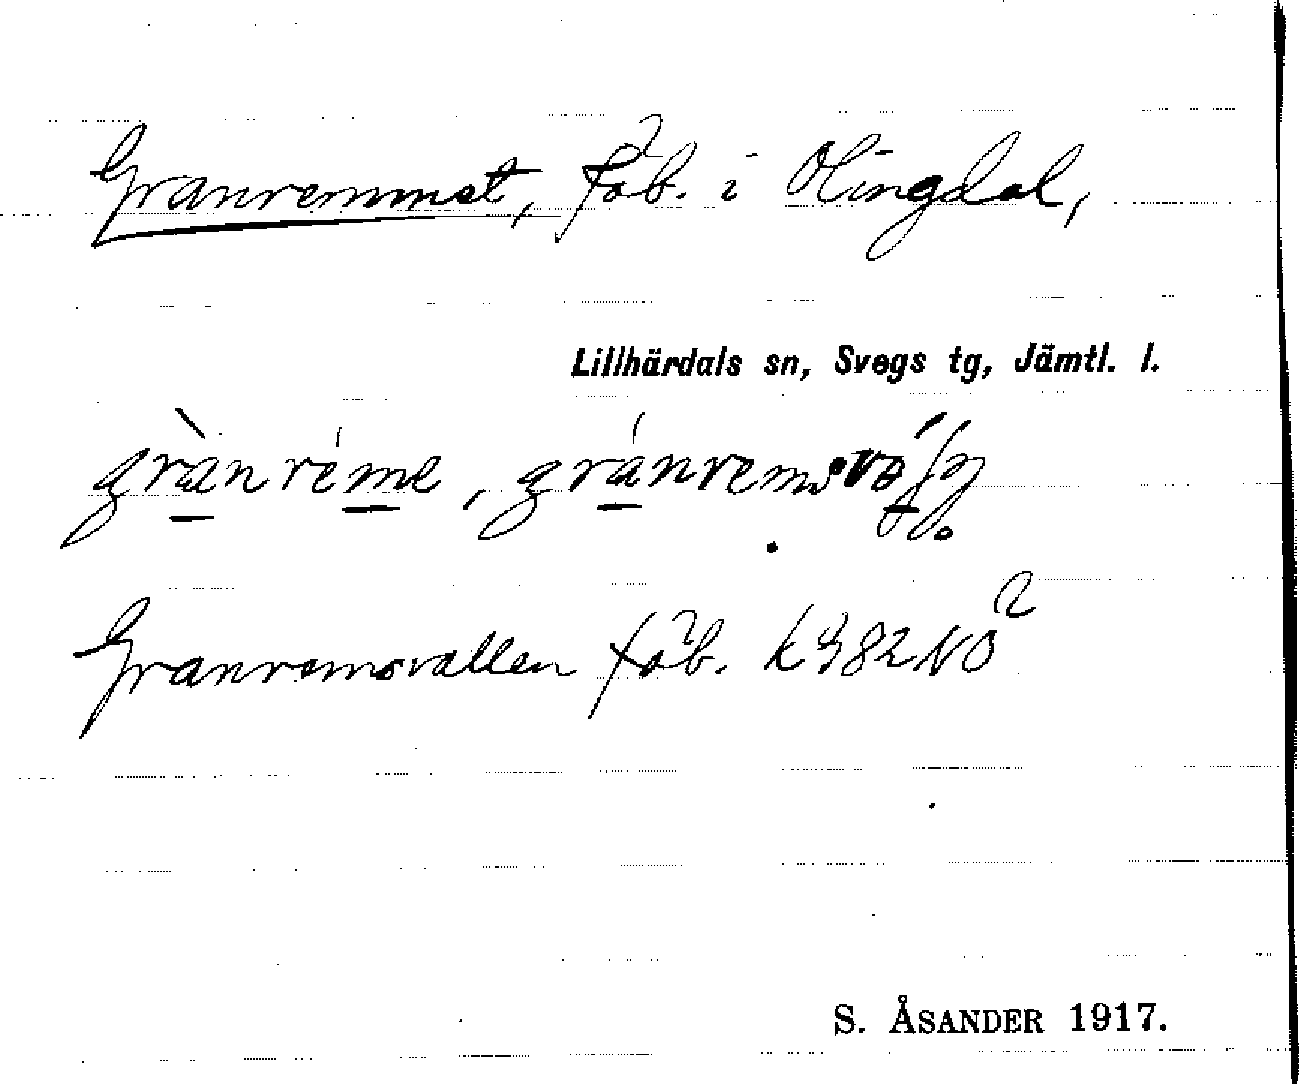 Granremmet, fäb. i Olingdal,
Lillhärdals sn, Svegs tg, Jämtl. l.
grànréme, gránremsvá
Granremsvallen fäb. k 482 NO²
S. ÅSANDER 1917.